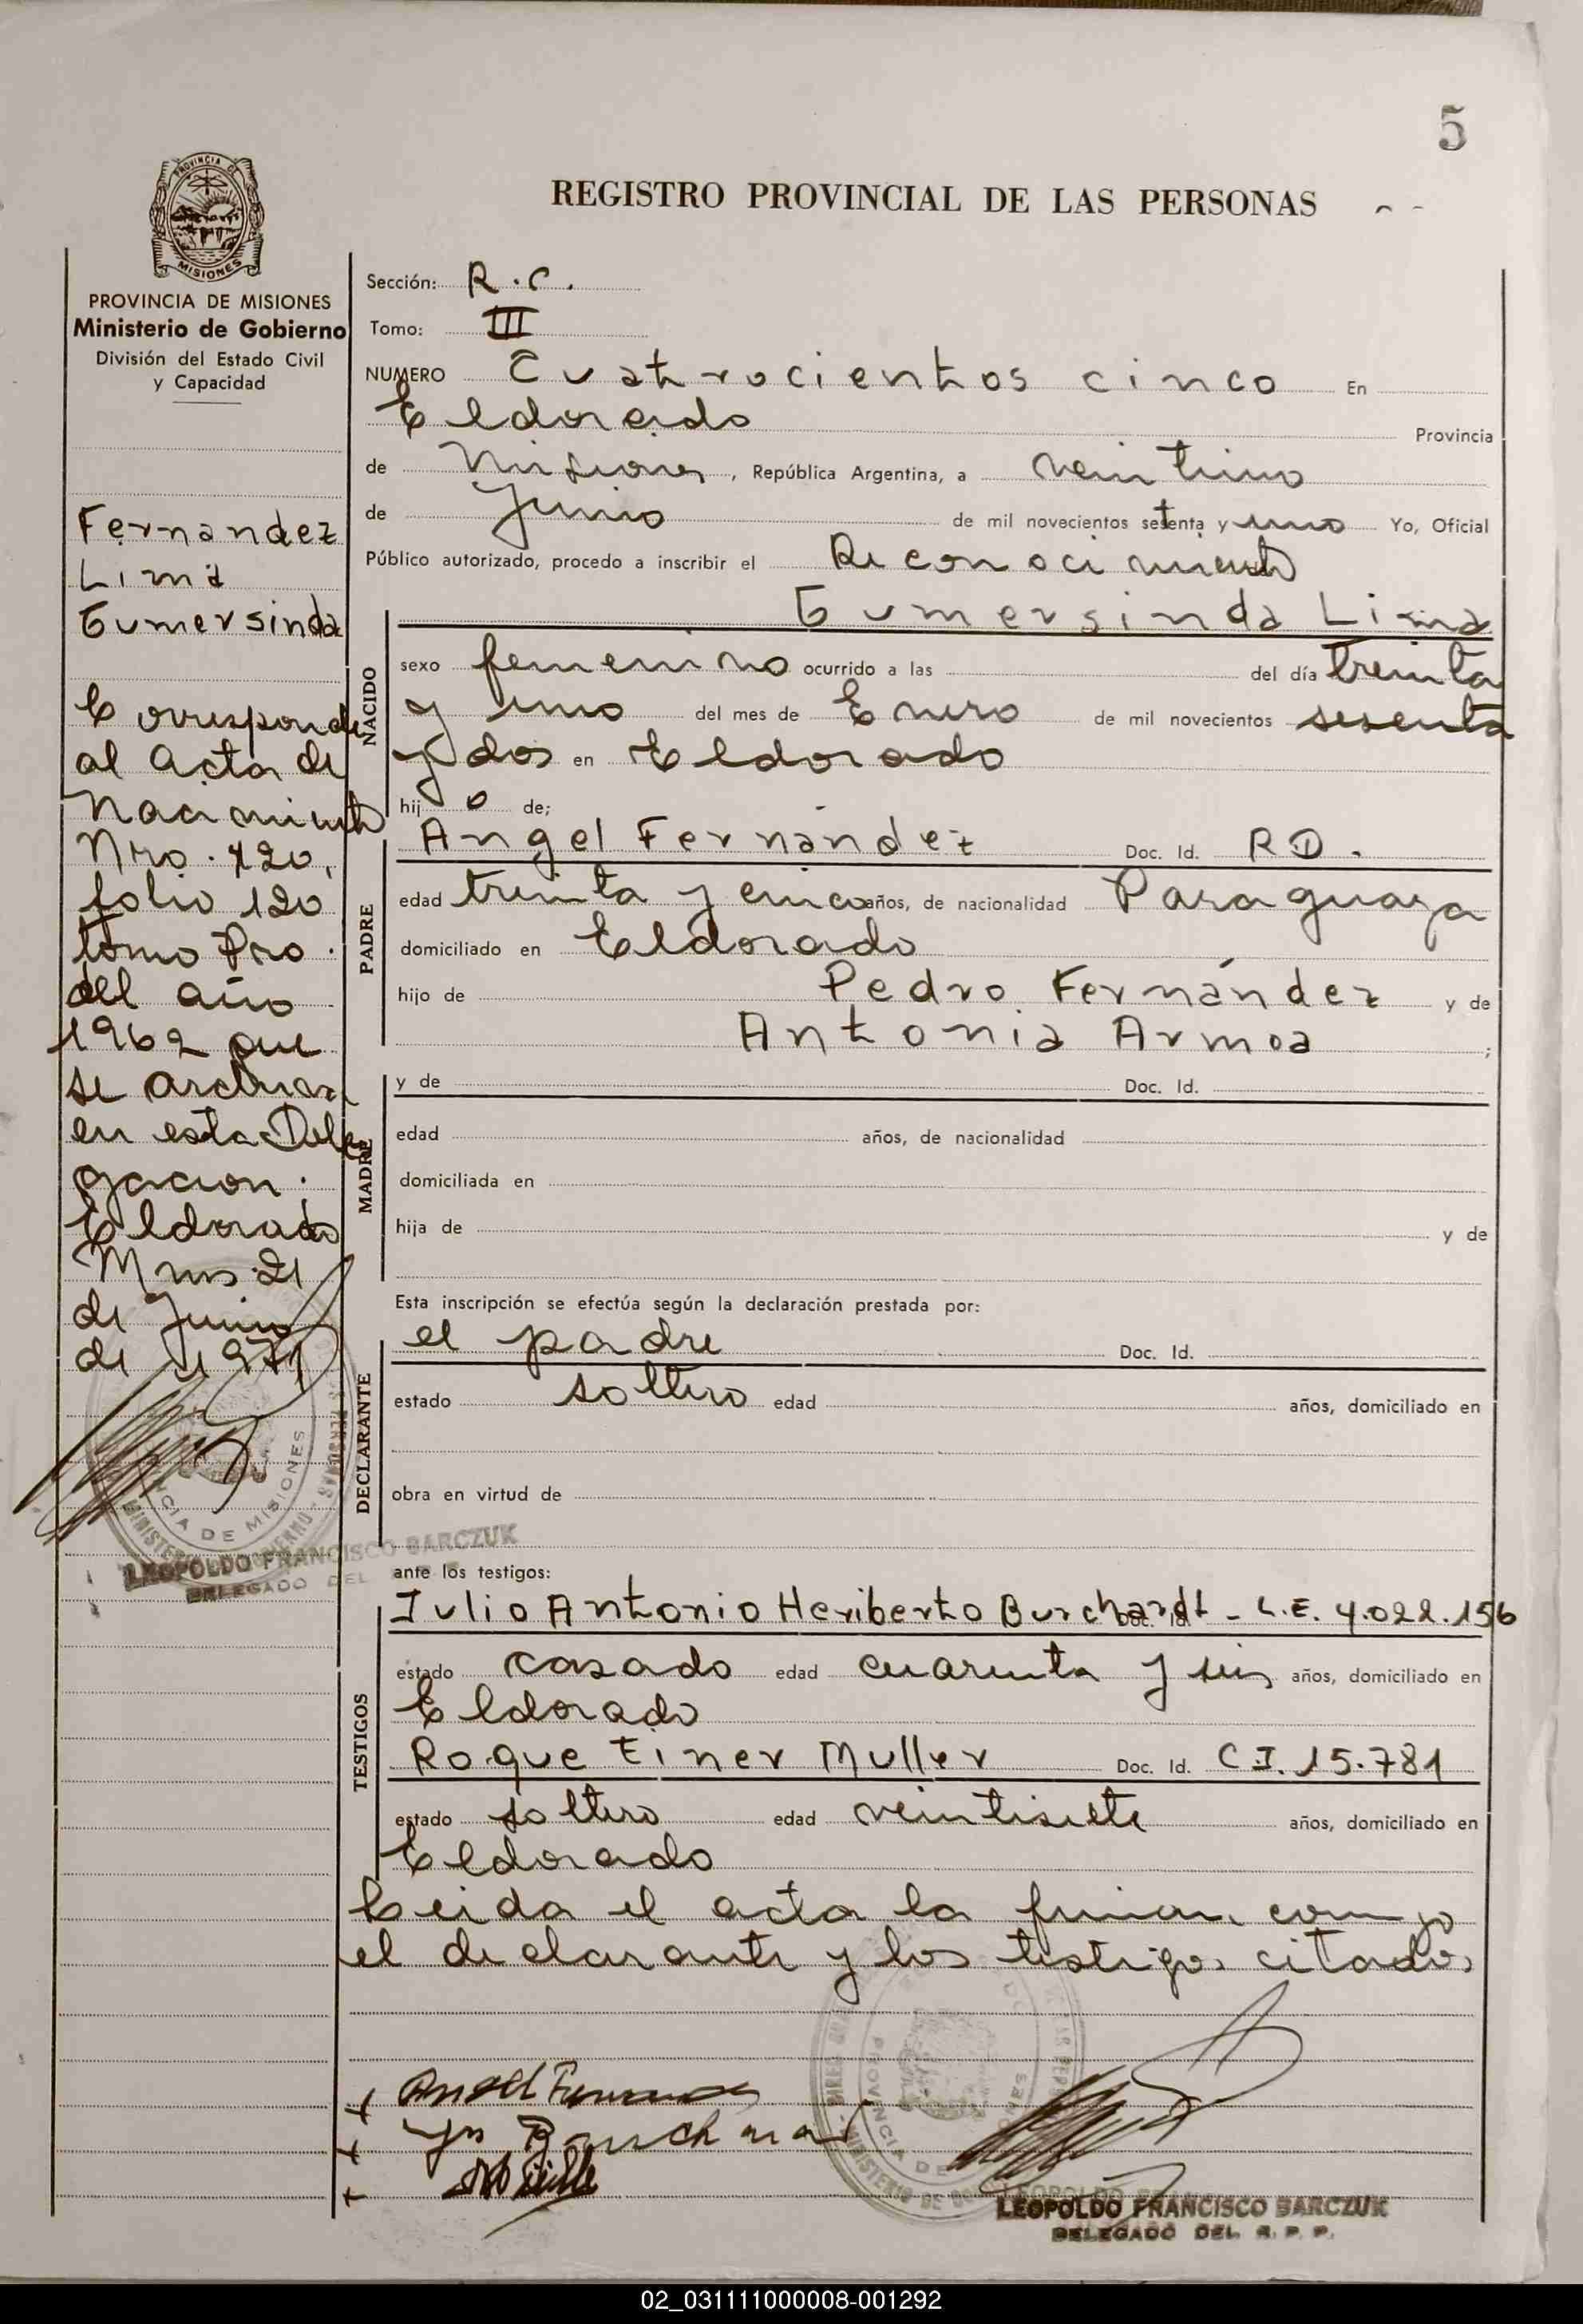 5
REGISTRO PROVINCIAL DE LAS PERSONAS
PROVINCIA DE
MISIONES
PROVINCIA DE MISIONES
Ministerio de Gobierno
División del Estado Civil
y Capacidad
Fernandez
Lima
Gumersinda
Corresponde
al Acta de
Nacimiento
Nro. 120,
folio 120
tomo Pro.
del año
1962 que
se archiva
en esta Dele
gacion;
Eldorado
Mnes. 21
de Junio
de 1971
LEOPOLDO FRANCISCO BARCZUK
DELEGADO DEL
Sección: R.C.
Tomo: III
NUMERO Cuatrocientos cinco En
Eldorado Provincia
de Misiones, República Argentina, a veintiuno
de Junio de mil novecientos setenta y uno Yo, Oficial
Público autorizado, procedo a inscribir el Reconocimiento
Gumersinda Lima
NACIDO
sexo femenino ocurrido a las del día treinta
y uno del mes de Enero de mil novecientos sesenta
y dos en Eldorado
hij o de;
PADRE
Angel Fernández Doc. Id. RD.
edad treinta y cinco años, de nacionalidad Paraguaya
domiciliado en Eldorado
hijo de Pedro Fernández y de
Antonia Armoa ;
MADRE
y de Doc. Id.
edad años, de nacionalidad
domiciliada en
hija de y de
Esta inscripción se efectúa según la declaración prestada por:
DECLARANTE
el padre Doc. Id.
estado soltero edad años, domiciliado en
obra en virtud de
ante los testigos:
TESTIGOS
Julio Antonio Heriberto Burchardt - L.E. 4.022.156
estado casado edad cuarenta y seis años, domiciliado en
Eldorado
Roque Einer Muller Doc. Id. C.I. 15.781
estado soltero edad veintisiete años, domiciliado en
Eldorado
Leida el acta la firman conmigo
el declarante y los testigos citados
Angel Fernandez
LEOPOLDO FRANCISCO BARCZUK
DELEGADO DEL R. P. P.
02_031111000008-001292